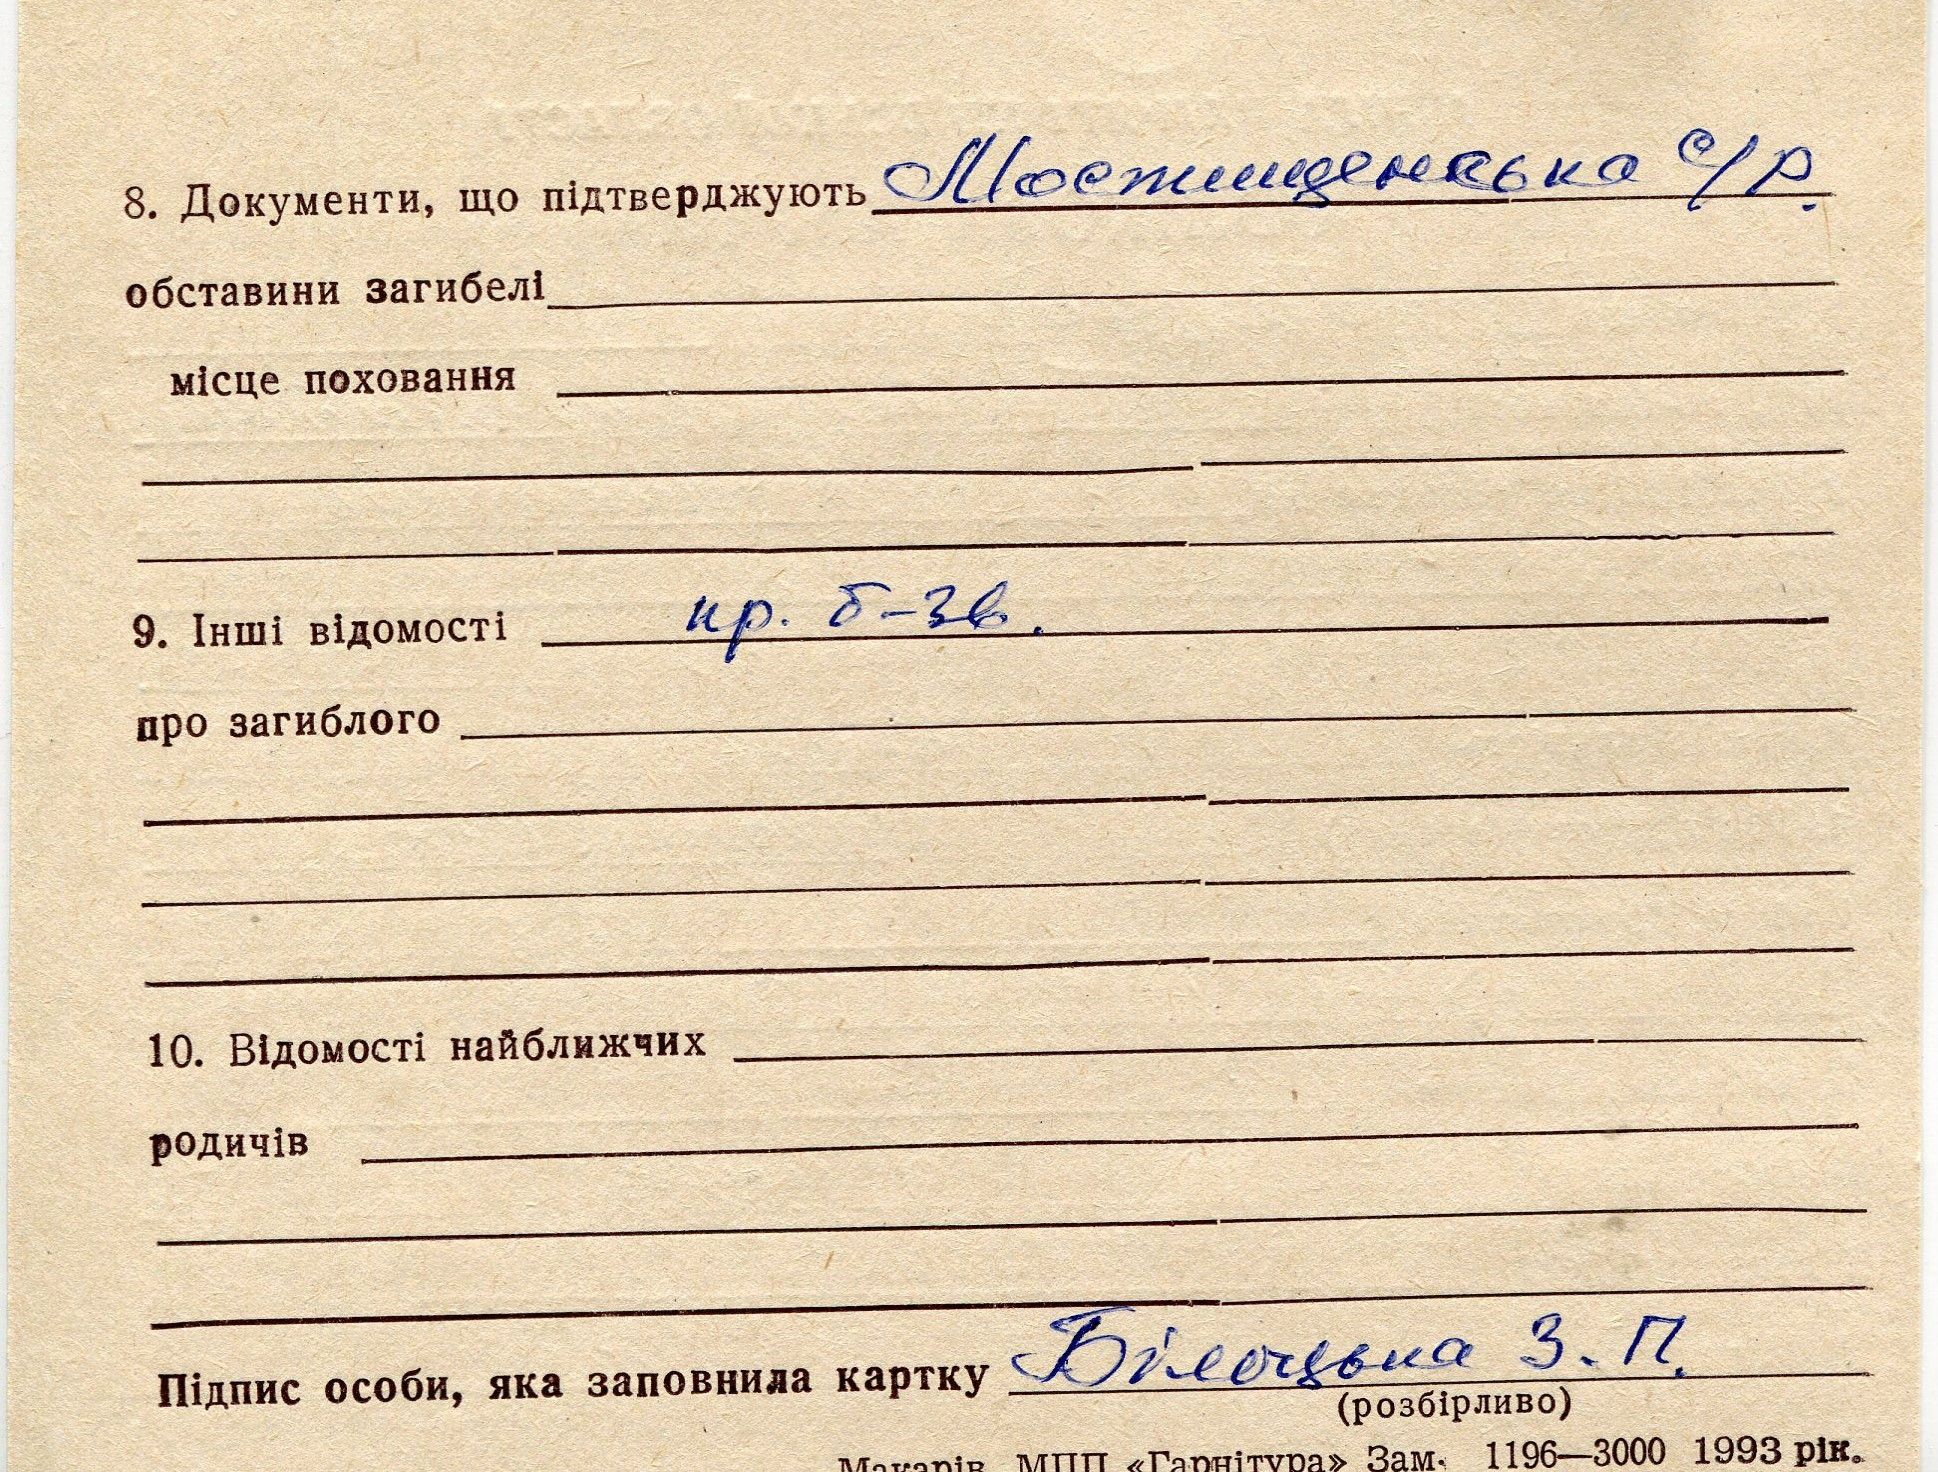 8. Документи, що підтверджують Мостищенська с/р.
обставини загибелі
місце поховання
9. Інші відомості пр. б-зв.
про загиблого
10. Відомості найближчих
родичів
Підпис особи, яка заповнила картку Білоцька З. П.
(розбірливо)
Макарів МПП «Гарнітура» Зам. 1196—3000 1993 рік.